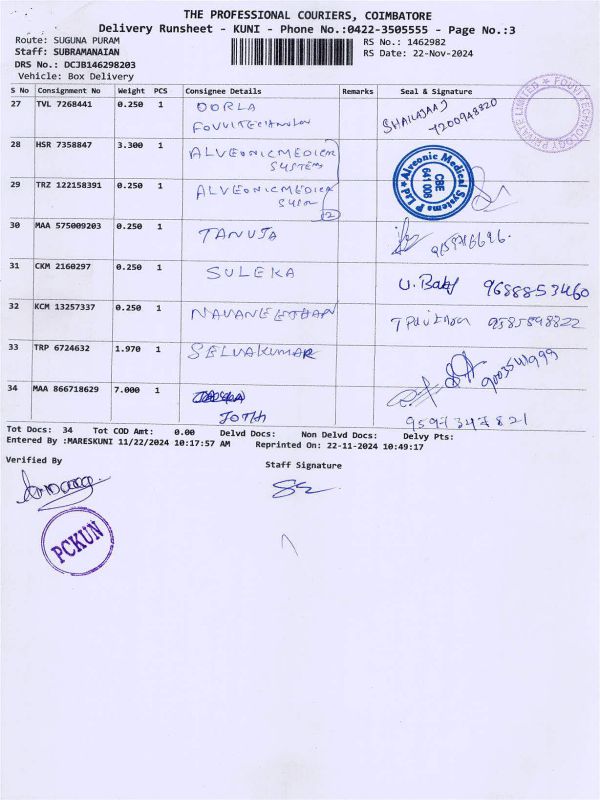 THE PROFESSIONAL COURIERS, COIMBATORE
Delivery Runsheet - KUNI - Phone No.:0422-3505555 - Page No.:3
Route: SUGUNA PURAM RS No.: 1462982
Staff: SUBRAMANAIAN RS Date: 22-Nov-2024
DRS No.: DCJB146298203
Vehicle: Box Delivery
S No Consignment No Weight PCS Consignee Details Remarks Seal & Signature
27 TVL 7268441 0.250 1 DORLA SHAILAJAA J
FOUVI TECHNOLOGY 7200948820
FOUVI TECHNOLOGY PRIVATE LIMITED
28 HSR 7358847 3.300 1 ALVEONIC MEDICAL
SYSTEMS
Alveonic Medical Systems P Ltd
CBE
641 008
29 TRZ 122158391 0.250 1 ALVEONIC MEDICAL
2
30 MAA 575009203 0.250 1 TANUJA
31 CKM 2160297 0.250 1 SULEKA U. Baby 9688853460
32 KCM 13257337 0.250 1 NAVANEETHAN 9585598822
33 TRP 6724632 1.970 1 SELVAKUMAR 9003541999
34 MAA 866718629 7.000 1
JOTHI 9597347821
Tot Docs: 34 Tot COD Amt: 0.00 Delvd Docs: Non Delvd Docs: Delvy Pts:
Entered By :MARESKUNI 11/22/2024 10:17:57 AM Reprinted On: 22-11-2024 10:49:17
Verified By Staff Signature
PCKUN